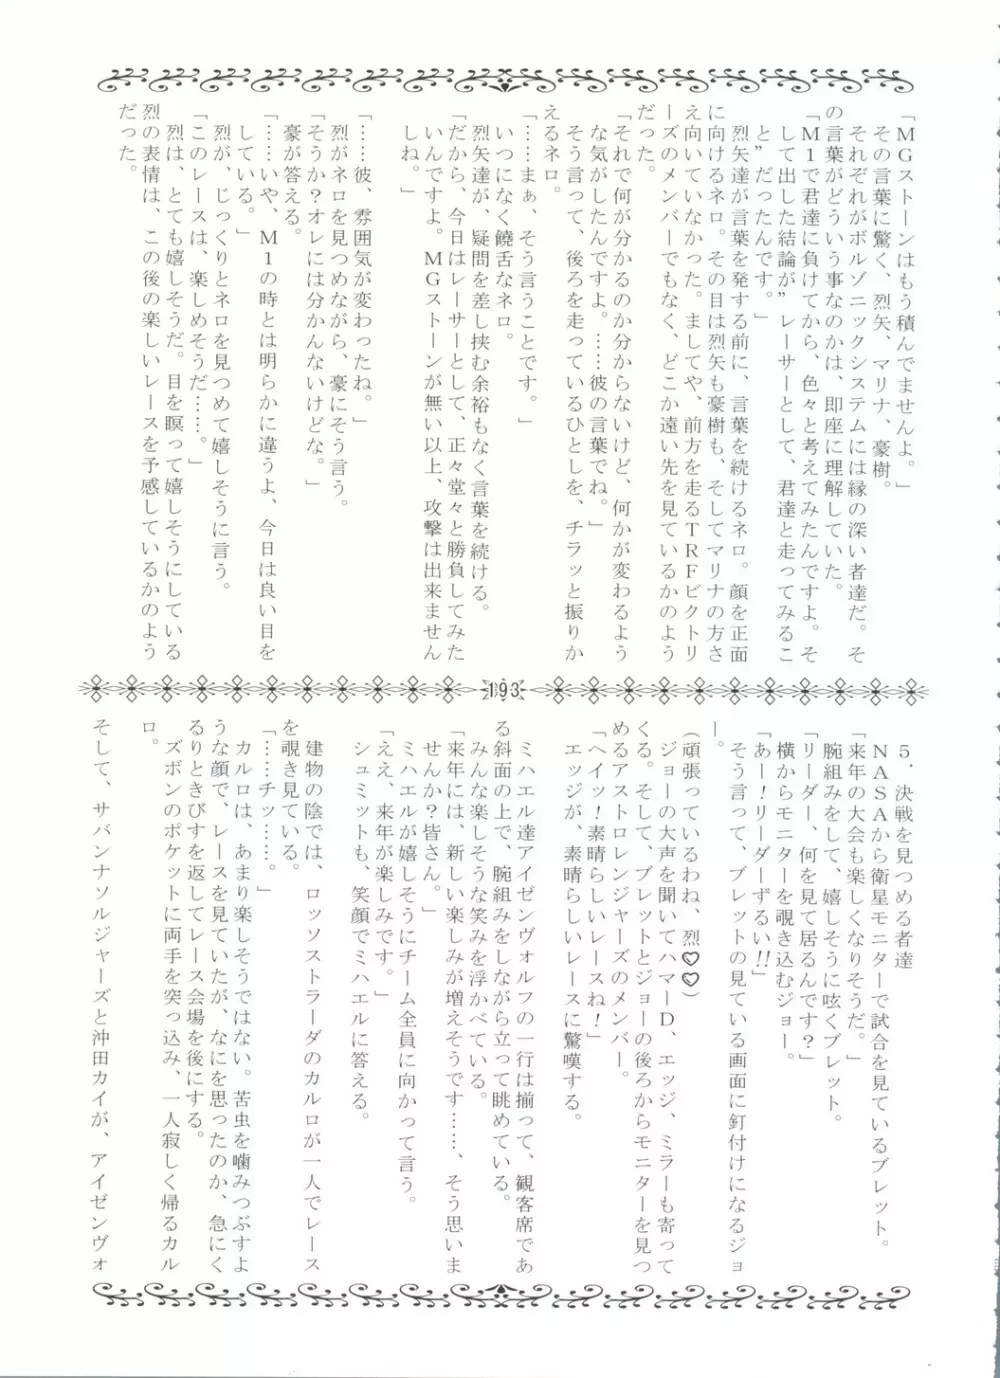 「MGストーンはもう積んでませんよ。」
その言葉に驚く、烈矢、マリナ、豪樹。
それぞれがボルゾニックシステムには縁の深い者達だ。そ
の言葉がどういう事なのかは、即座に理解していた。
「M1で君達に負けてから、色々と考えてみたんですよ。そ
して出した結論が”レーサーとして、君達と走ってみるこ
と”だったんです。」
烈矢達が言葉を発する前に、言葉を続けるネロ。顔を正面
に向けるネロ。その目は烈矢も豪樹も、そしてマリナの方さ
え向いていなかった。ましてや、前方を走るTRFビクトリ
ーズのメンバーでもなく、どこか遠い先を見ているかのよう
だった。
「それで何が分かるのか分からないけど、何かが変わるよう
な気がしたんですよ。……彼の言葉でね。」
そう言って、後ろを走っているひとしを、チラッと振りか
えるネロ。
「……まぁ、そう言うことです。」
いつになく饒舌なネロ。
烈矢達が、疑問を差し挟む余裕もなく言葉を続ける。
「だから、今日はレーサーとして、正々堂々と勝負してみた
いんですよ。MGストーンが無い以上、攻撃は出来ません
しね。」
「……彼、雰囲気が変わったね。」
烈がネロを見つめながら、豪にそう言う。
「そうか？オレには分かんないけどな。」
豪が答える。
「……いや、M1の時とは明らかに違うよ、今日は良い目を
している。」
烈が、じっくりとネロを見つめて嬉しそうに言う。
「このレースは、楽しめそうだ……。」
烈は、とても嬉しそうだ。目を瞑って嬉しそうにしている
烈の表情は、この後の楽しいレースを予感しているかのよう
だった。
193
５．決戦を見つめる者達
NASAから衛星モニターで試合を見ているブレット。
「来年の大会も楽しくなりそうだ。」
腕組みをして、嬉しそうに呟くブレット。
「リーダー、何を見て居るんです？」
横からモニターを覗き込むジョー。
「あー！リーダーずるい！！」
そう言って、ブレットの見ている画面に釘付けになるジョ
ー。
（頑張っているわね、烈♡♡）
ジョーの大声を聞いてハマーD、エッジ、ミラーも寄って
くる。そして、ブレットとジョーの後ろからモニターを見つ
めるアストロレンジャーズのメンバー。
「ヘイッ！素晴らしいレースね！」
エッジが、素晴らしいレースに驚嘆する。
ミハエル達アイゼンヴォルフの一行は揃って、観客席であ
る斜面の上で、腕組みをしながら立って眺めている。
みんな楽しそうな笑みを浮かべている。
「来年には、新しい楽しみが増えそうです……、そう思いま
せんか？皆さん。」
ミハエルが嬉しそうにチーム全員に向かって言う。
「ええ、来年が楽しみです。」
シュミットも、笑顔でミハエルに答える。
建物の陰では、ロッソストラーダのカルロが一人でレース
を覗き見ている。
「……チッ……。」
カルロは、あまり楽しそうではない。苦虫を噛みつぶすよ
うな顔で、レースを見ていたが、なにを思ったのか、急にく
るりときびすを返してレース会場を後にする。
ズボンのポケットに両手を突っ込み、一人寂しく帰るカル
ロ。
そして、サバンナソルジャーズと沖田カイが、アイゼンヴォ